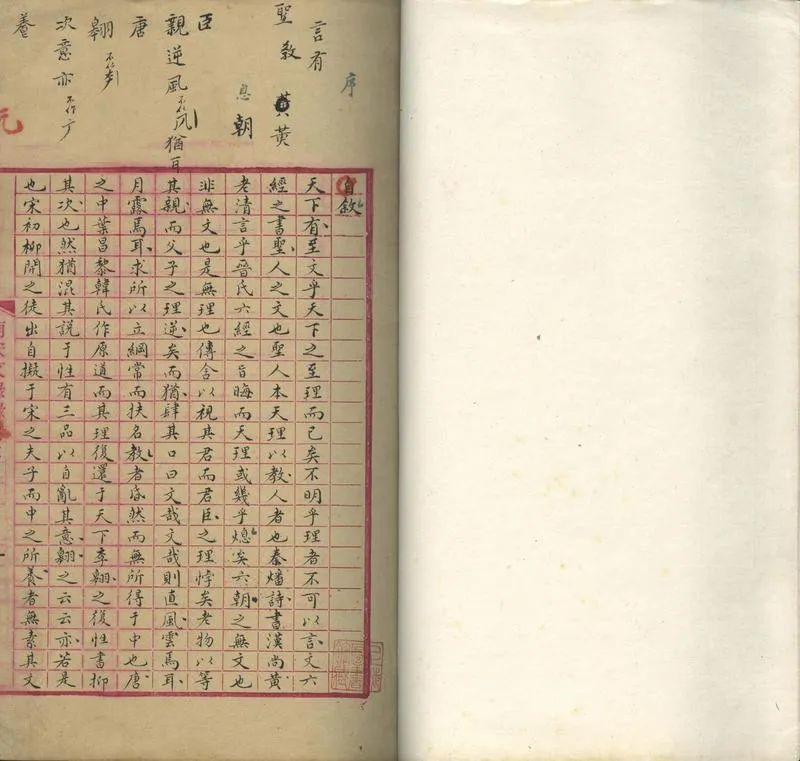 序
言有
聖教 黃黄
息朝
臣
親逆風不作
唐
翱不作
次意亦不作
養
自敘
天下有至文乎天下之至理而已矣不明乎理者不可以言文六
經之書聖人之文也聖人本天理以教人者也秦燔詩書漢尚黃
老清言乎晉氏六經之旨晦而天理或幾乎熄矣六朝之無文也
非無文也是無理也傳舍以視其君而君臣之理悖矣老物以等
其親而父子之理逆矣而猶肆其口曰文哉文哉則直風雲焉耳
月露焉耳求所以立綱常而扶名教者寂然而無所得于中也唐
之中葉昌黎韓氏作原道而其理復還于天下李翱之復性書抑
其次也然猶混其說于性有三品以自亂其意翱之云云亦若是
也宋初柳開之徒出自擬于宋之夫子而中之所養者無素其文